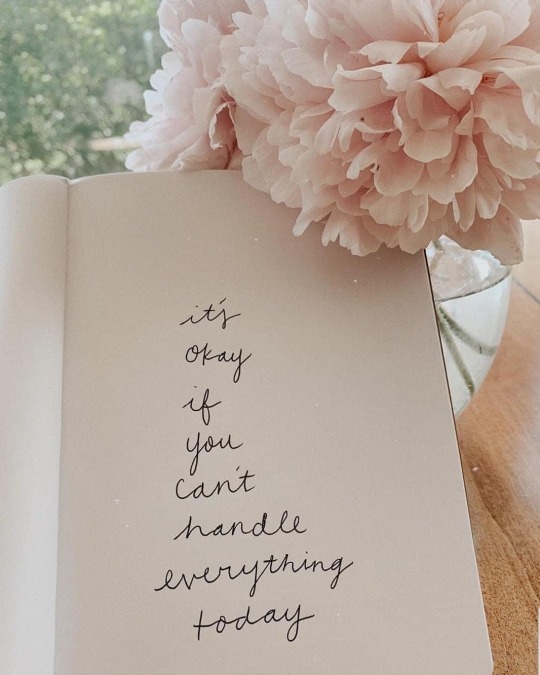 it's
okay
if
you
can't
handle
everything
today